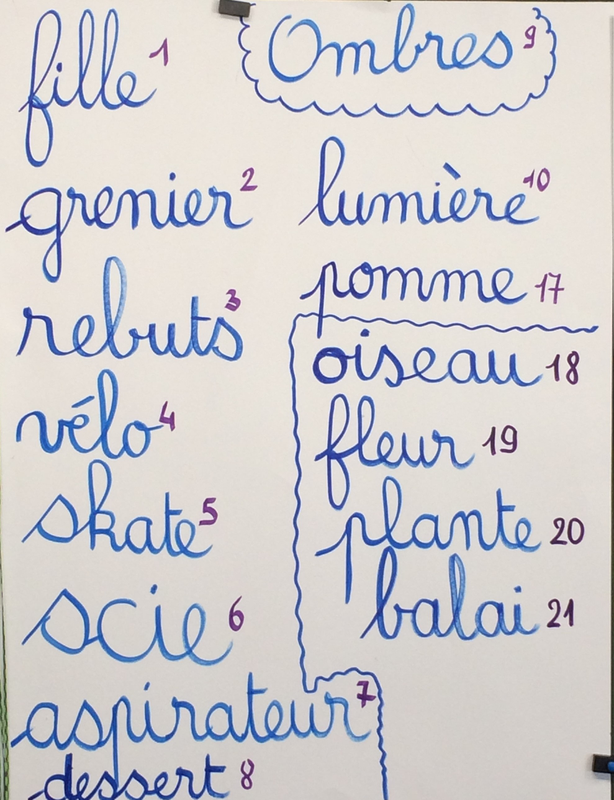 fille 1
grenier 2
rebuts 3
vélo 4
skate 5
scie 6
aspirateur 7
dessert 8
Ombres 9
lumière 10
pomme 17
oiseau 18
fleur 19
plante 20
balai 21